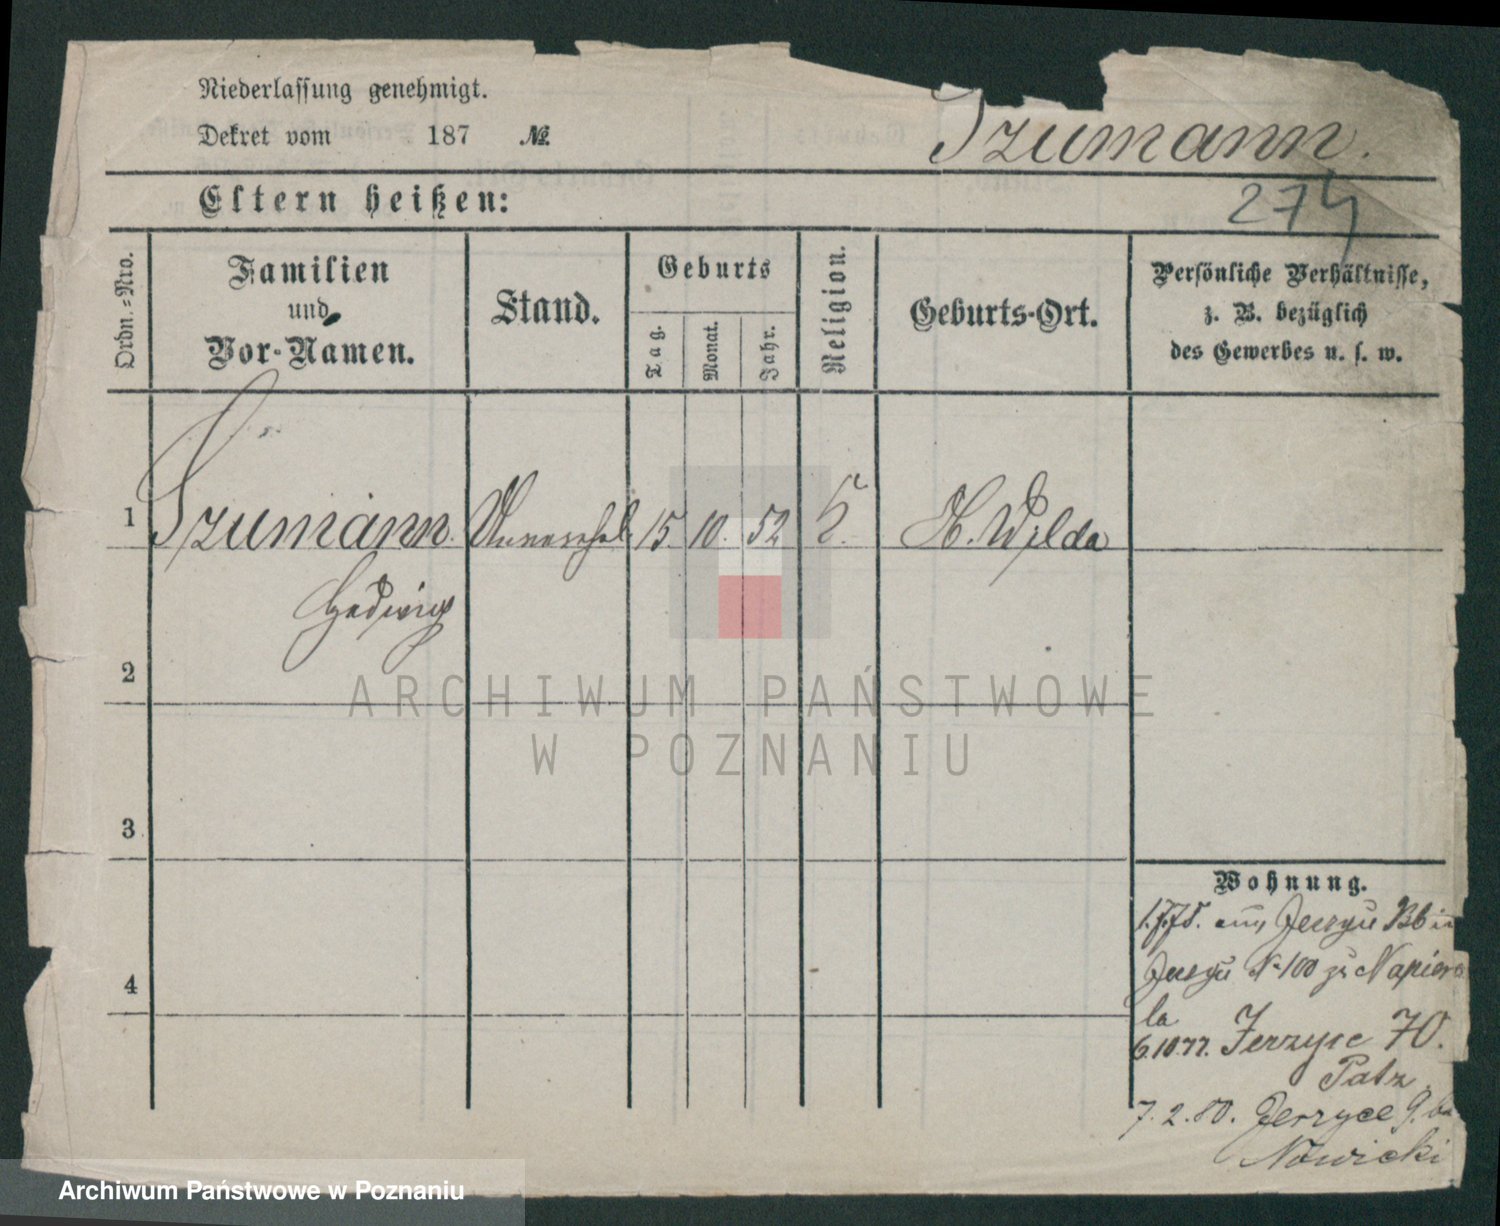 Niederlassung genehmigt.
Dekret vom 187 №
Szumann.
274
Eltern heißen:
Ordn.-Nro.
Familien
und
Vor-Namen.
Stand.
Geburts
Tag.
Monat.
Jahr.
Religion.
Geburts-Ort.
Persönliche Verhältnisse,
z. B. bezüglich
des Gewerbes u. s. w.
1 Szumann. Unverehel. 15. 10. 52 K. H. Wilda
Hedwig
2
3
4
ARCHIWUM PAŃSTWOWE
W POZNANIU
Wohnung.
1.7.75. aus
№ 100 zu Napiera
la
6.10.77. Jerzyce 70.
Patz
7.2.80. Jerzyce 9. bei
Nowicki
Archiwum Państwowe w Poznaniu